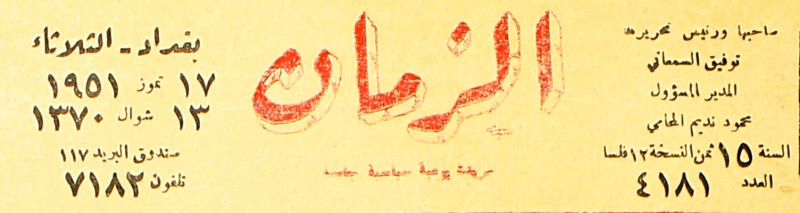 صاحبها ورئيس تحريرها
توفيق السمعاني
المدير المسؤول
محمود نديم المحامي
السنة ١٥ ثمن النسخة ١٢ فلسا
العدد ٤١٨١
الزمان
بغداد - الثلاثاء
١٧ تموز ١٩٥١
١٣ شوال ١٣٧٠
صندوق البريد ١١٧
تلفون ٧١٨٢